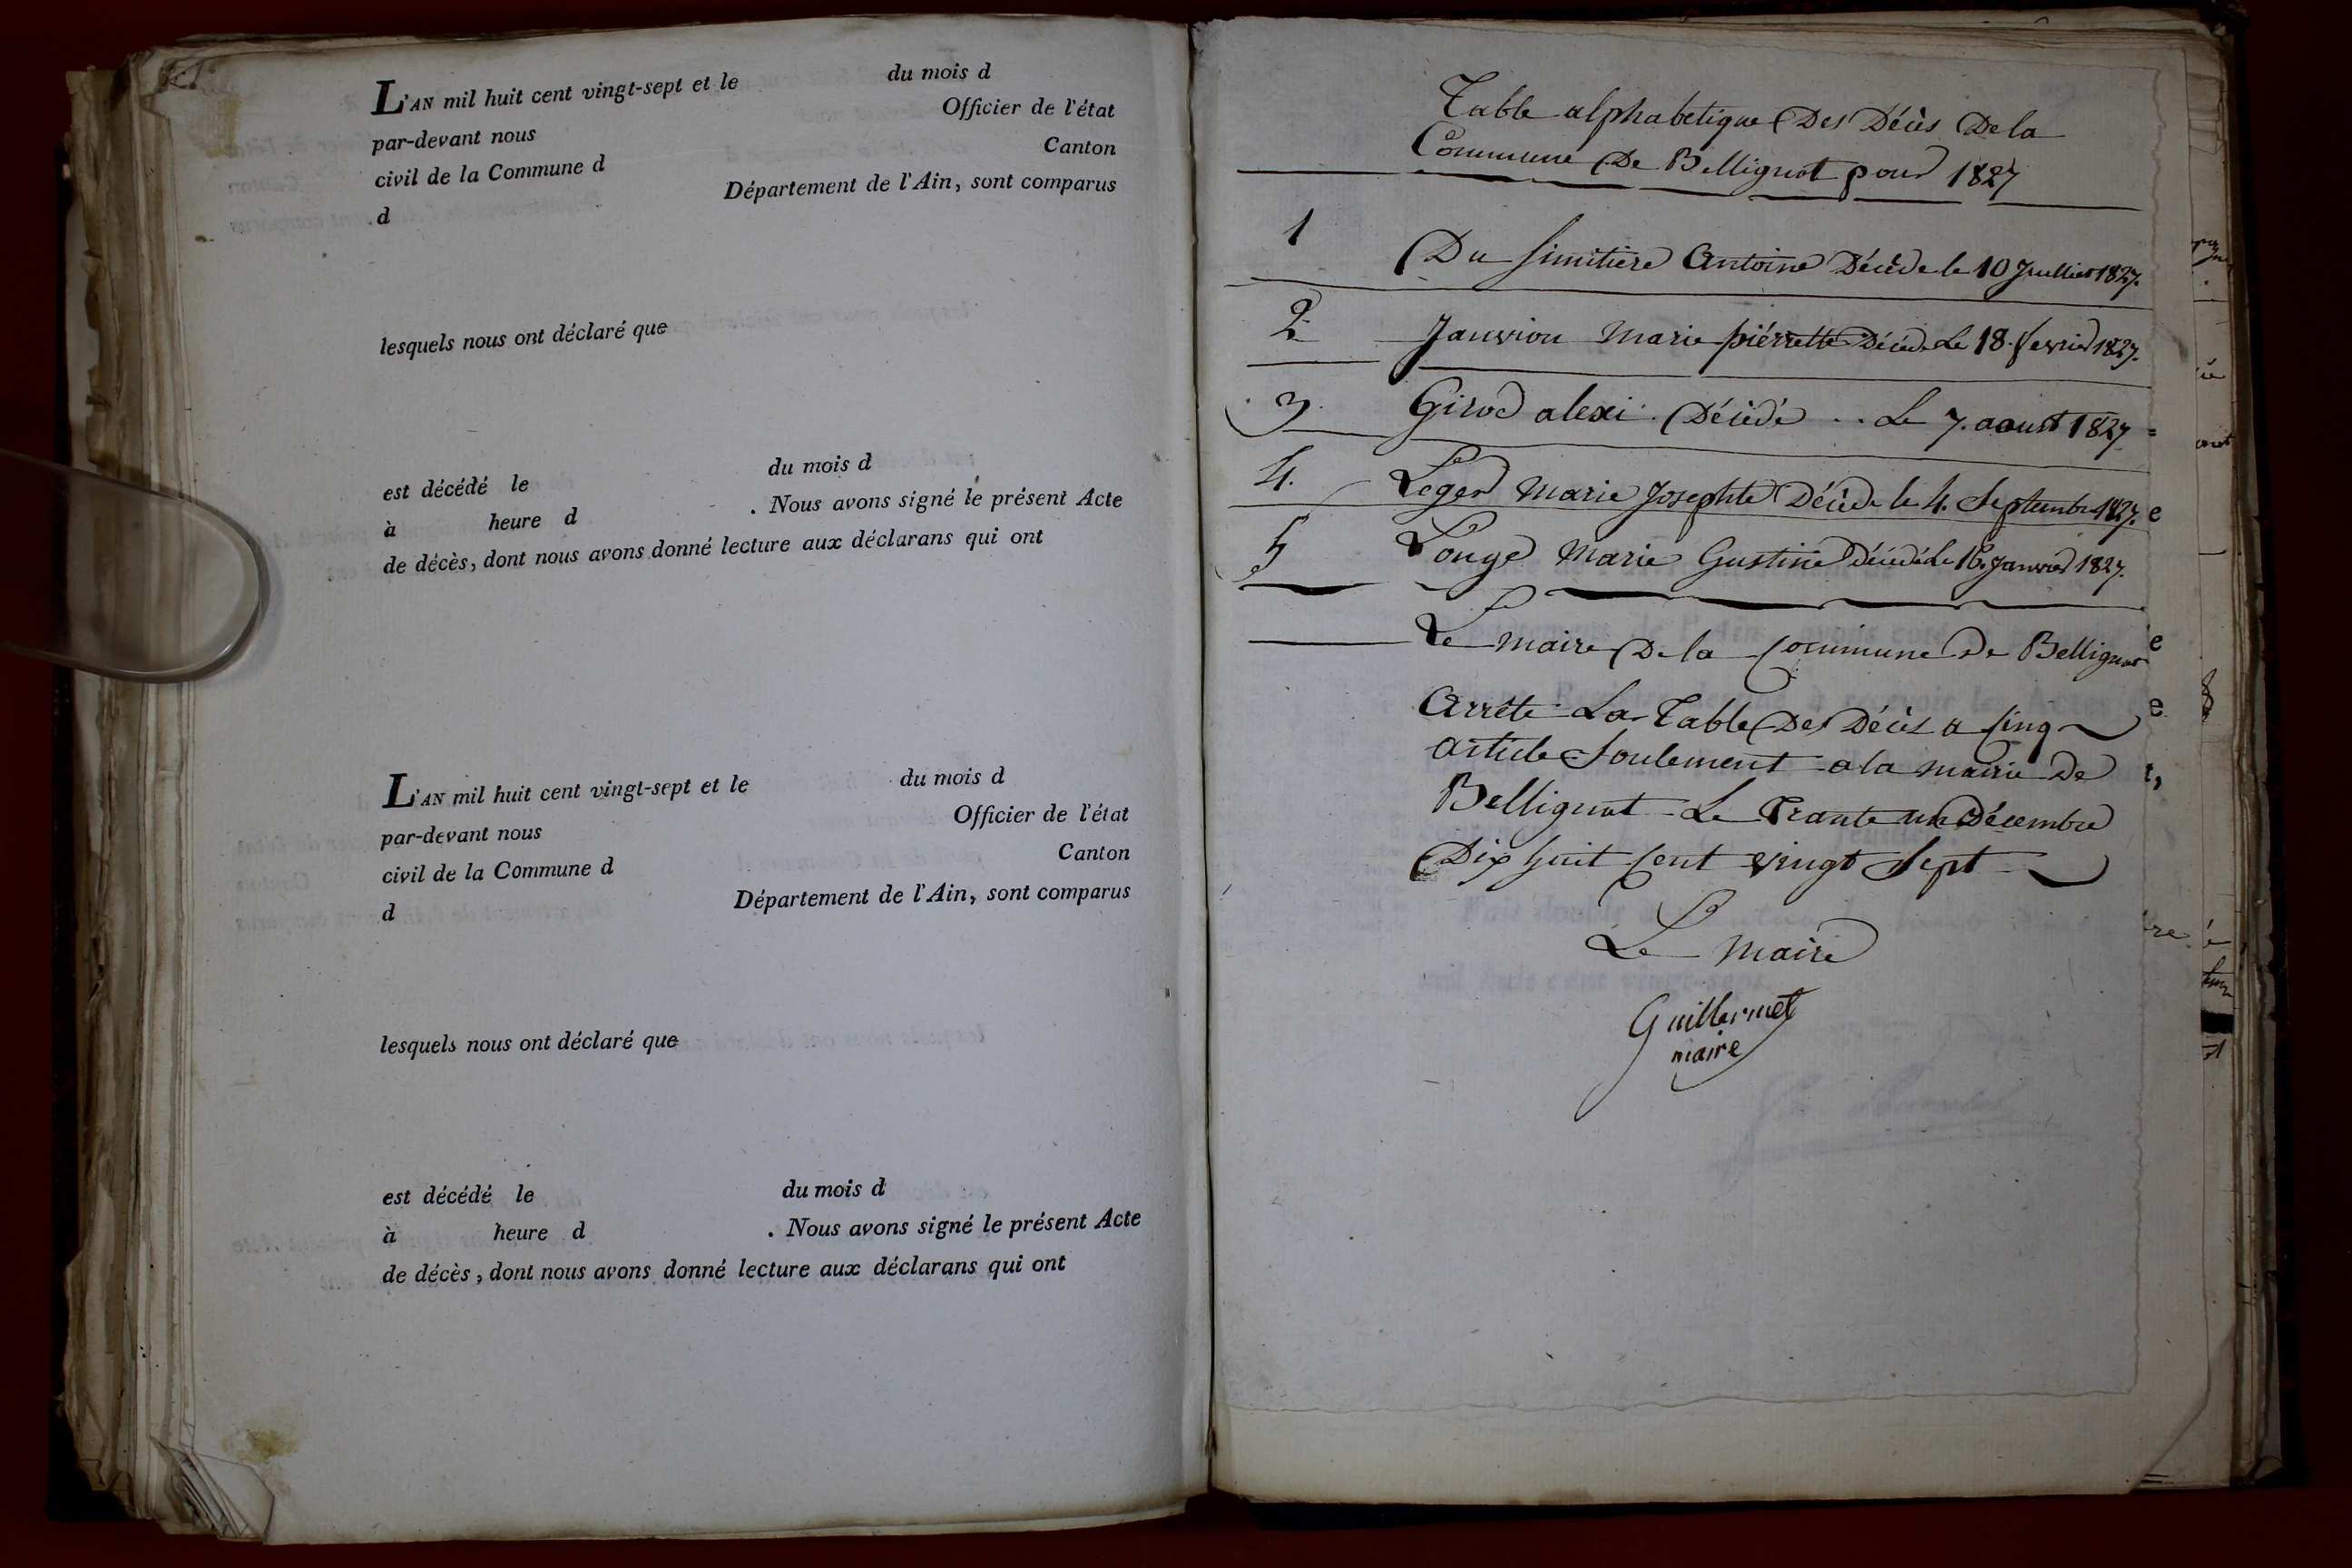 L'AN mil huit cent vingt-sept et le du mois d
par-devant nous Officier de l'état
civil de la Commune d Canton
d Département de l'Ain, sont comparus
lesquels nous ont déclaré que
est décédé le du mois d
à heure d . Nous avons signé le présent Acte
de décès, dont nous avons donné lecture aux déclarans qui ont
L'AN mil huit cent vingt-sept et le du mois d
par-devant nous Officier de l'état
civil de la Commune d Canton
d Département de l'Ain, sont comparus
lesquels nous ont déclaré que
est décédé le du mois d
à heure d . Nous avons signé le présent Acte
de décès, dont nous avons donné lecture aux déclarans qui ont
Table alphabetique Des Décès De la
Commune De Bellignat pour 1827
1 Du simitiere Antoine Décède le 10 Juillier 1827.
2 Janvrion Marie piérrette Décéde Le 18. fevrier 1827.
3. Girod alexi Décédé .. Le 7. aoust 1827
4. Leger Marie Josephte Décéde le 4. Septembre 1827.
5 Longe Marie Gustine Décédé Le 16. Janvier 1827.
Le maire De la Commune de Bellignat
Arrête La Table Des Décès a Cinq
article Soulement a la mairie De
Bellignat Le Trante un Décembre
Dix huit Cent vingt Sept
Le Maire
Guillermet
maire